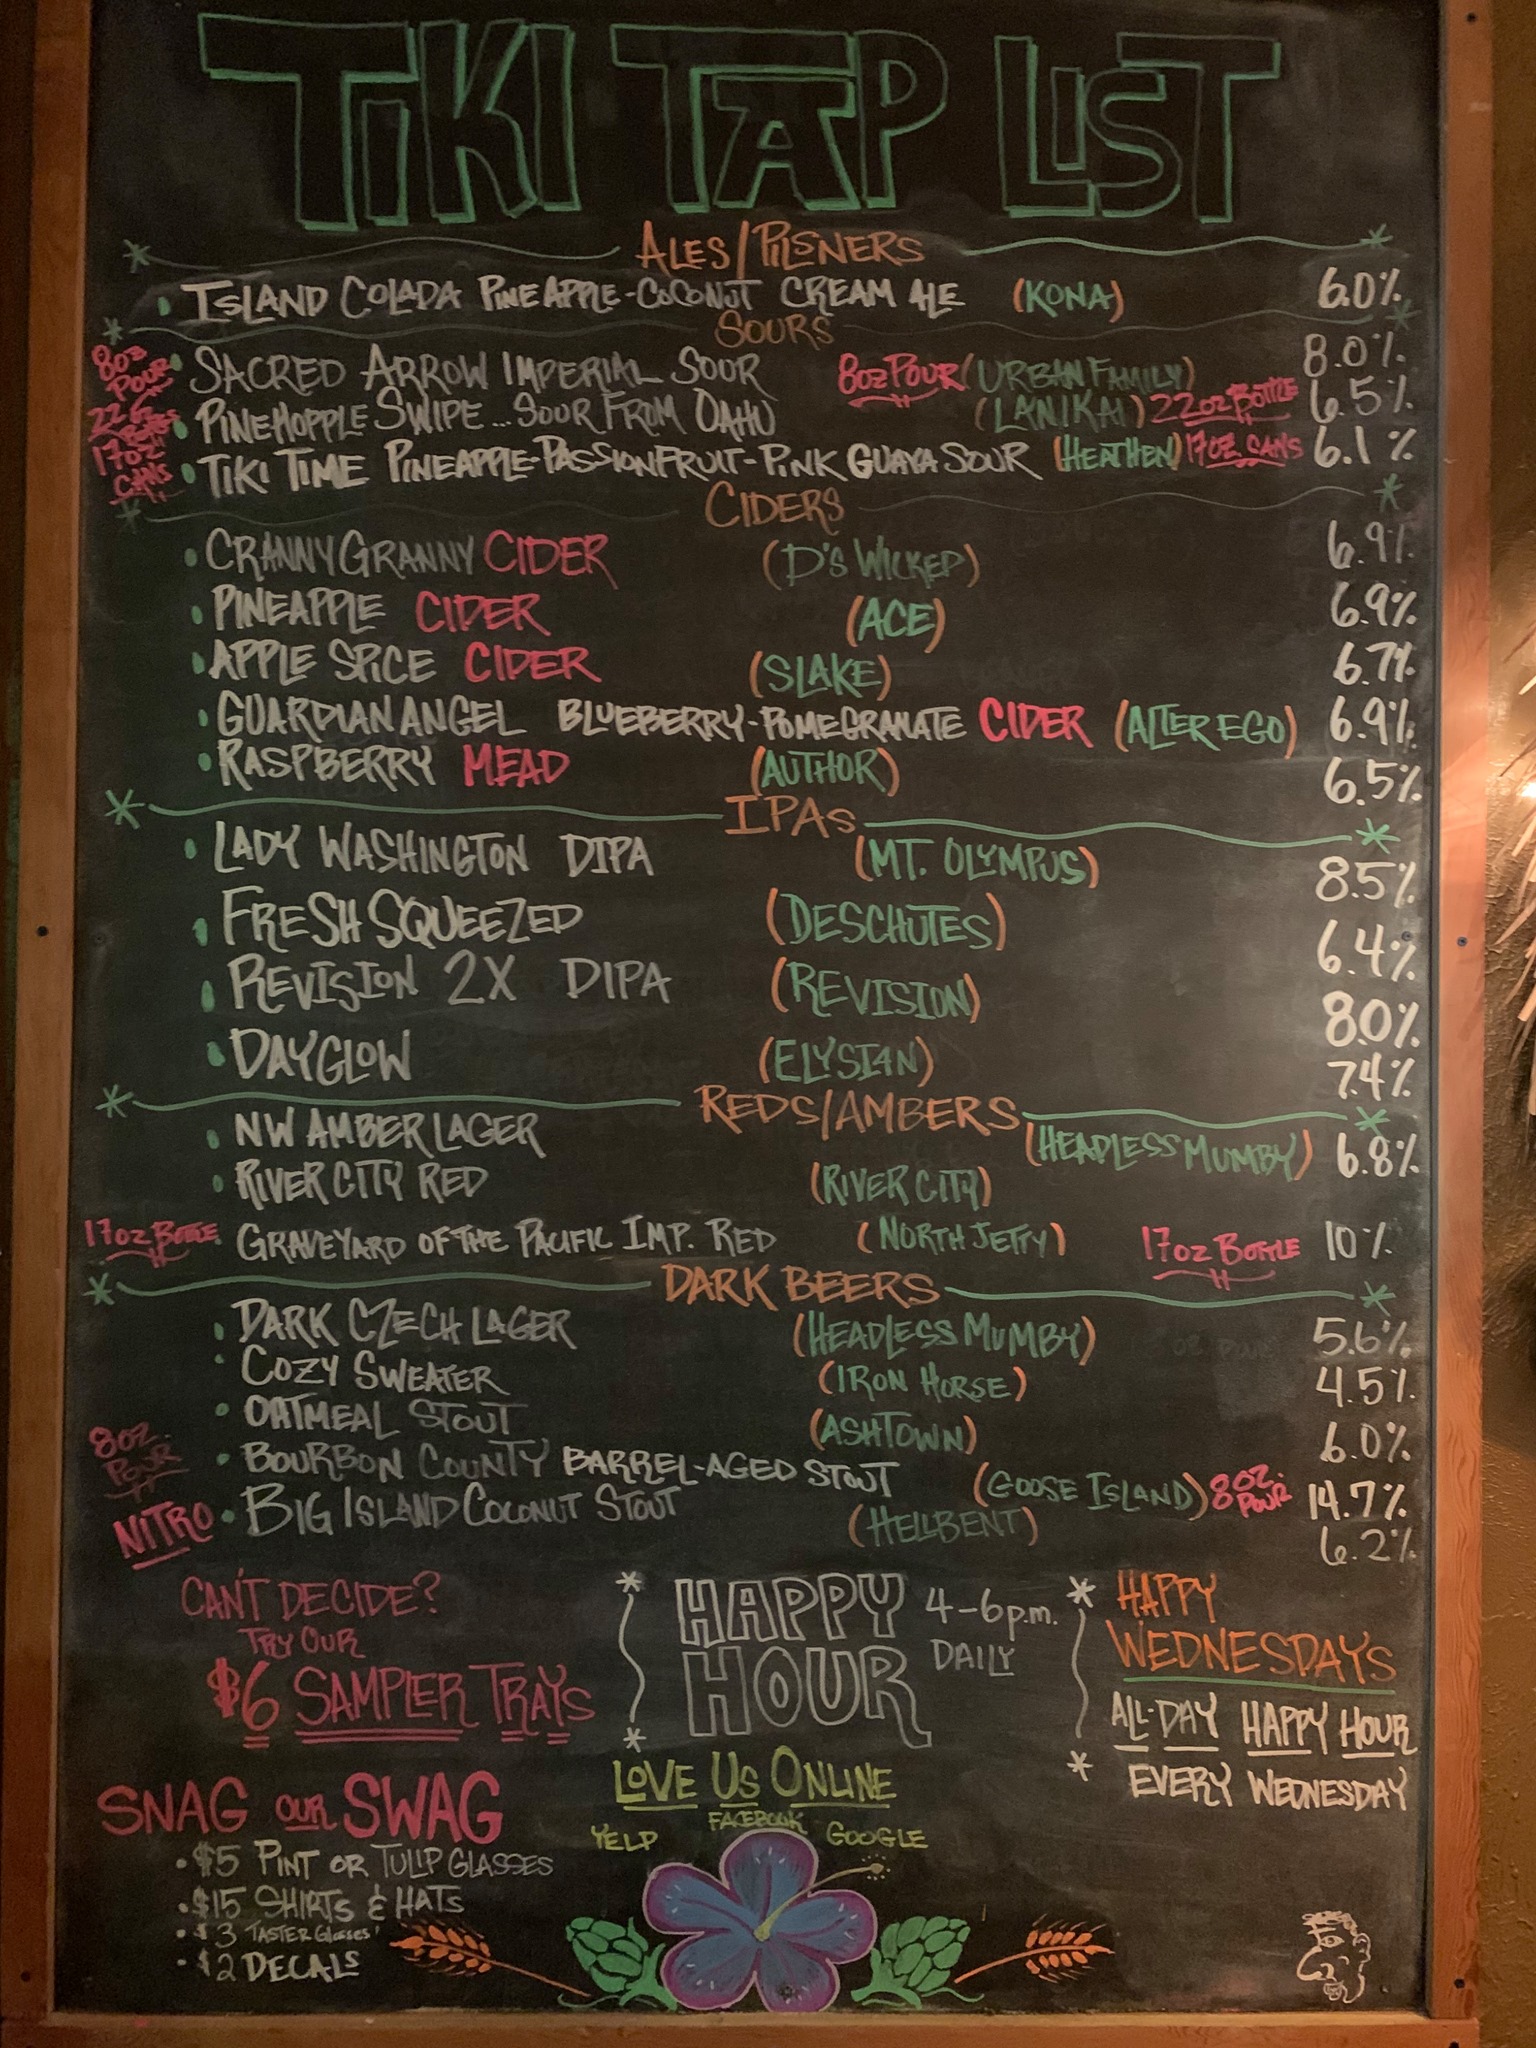 TIKI TAP LIST
ALES/PILSNERS
ISLAND COLADA PINEAPPLE-COCONUT CREAM ALE (KONA) 6.0%
SOURS
8oz POUR SACRED ARROW IMPERIAL SOUR 8oz POUR (URBAN FAMILY) 8.0%
22oz PINEHOPPLE SWIPE... SOUR FROM OAHU (LANIKAI) 22oz BOTTLE 6.5%
17oz CANS TIKI TIME PINEAPPLE-PASSIONFRUIT-PINK GUAVA SOUR (HEATHEN) 17oz CANS 6.1%
CIDERS
CRANNY GRANNY CIDER (D'S WICKED) 6.9%
PINEAPPLE CIDER (ACE) 6.9%
APPLE SPICE CIDER (SLAKE) 6.7%
GUARDIAN ANGEL BLUEBERRY-POMEGRANATE CIDER (ALTER EGO) 6.9%
RASPBERRY MEAD (AUTHOR) 6.5%
IPAS
LADY WASHINGTON DIPA (MT. OLYMPUS) 8.5%
FRESH SQUEEZED (DESCHUTES) 6.4%
REVISION 2X DIPA (REVISION) 8.0%
DAYGLOW (ELYSIAN) 7.4%
REDS/AMBERS
NW AMBER LAGER (HEADLESS MUMBY) 6.8%
RIVER CITY RED (RIVER CITY)
17oz BOTTLE GRAVEYARD OF THE PACIFIC IMP. RED (NORTH JETTY) 17oz BOTTLE 10%
DARK BEERS
DARK CZECH LAGER (HEADLESS MUMBY) 5.6%
COZY SWEATER (IRON HORSE) 4.5%
OATMEAL STOUT (ASHTOWN) 6.0%
8oz. POUR BOURBON COUNTY BARREL-AGED STOUT (GOOSE ISLAND) 8oz. POUR 14.7%
NITRO BIG ISLAND COCONUT STOUT (HELLBENT) 6.2%
CAN'T DECIDE?
TRY OUR
$6 SAMPLER TRAYS
HAPPY HOUR
4-6p.m.
DAILY
HAPPY
WEDNESDAYS
ALL-DAY HAPPY HOUR
EVERY WEDNESDAY
SNAG OUR SWAG
$5 PINT OR TULIP GLASSES
$15 SHIRTS & HATS
$3 TASTER Glasses
$2 DECALS
LOVE US ONLINE
YELP FACEBOOK GOOGLE